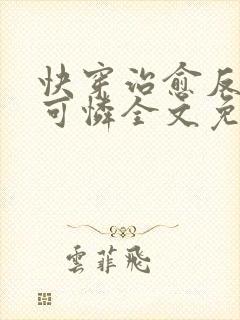 快穿治愈反
可憐全文免
雲菲飛